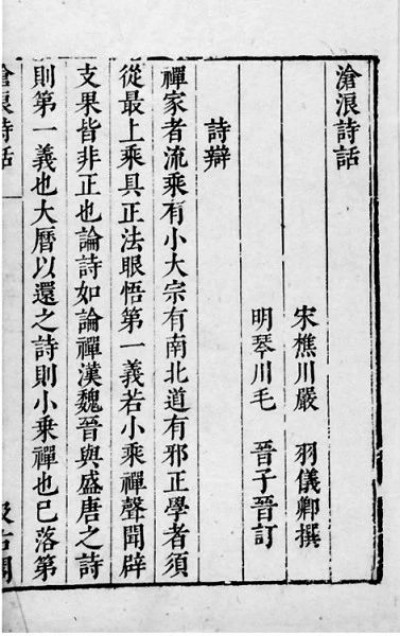 滄浪詩話
宋樵川嚴 羽儀卿撰
明琴川毛 晉子晉訂
詩辯
禪家者流乘有小大宗有南北道有邪正學者須
從最上乘具正法眼悟第一義若小乘禪聲聞辟
支果皆非正也論詩如論禪漢魏晉與盛唐之詩
則第一義也大曆以還之詩則小乘禪也已落第
滄浪詩話
汲古閣